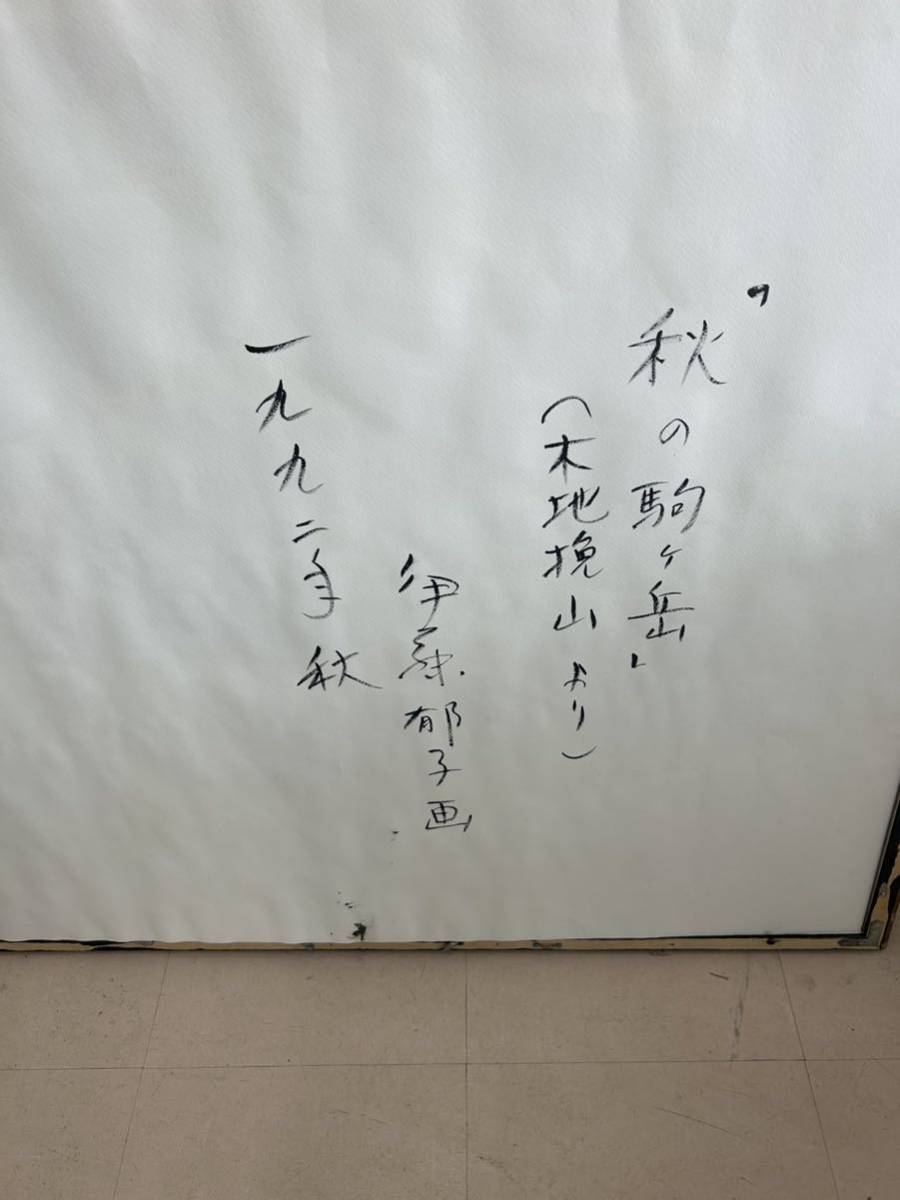 「秋の駒ヶ岳」
（木地挽山より）
伊藤郁子画
一九九二年秋